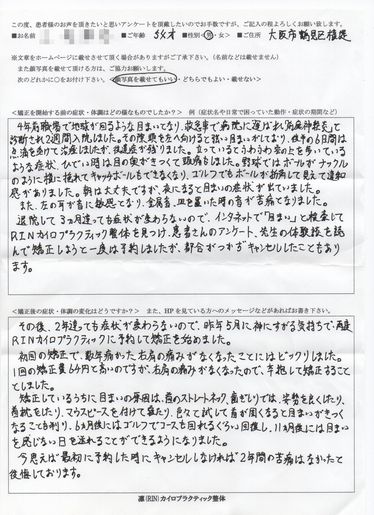 この度、患者様のお声を頂きたいと思いアンケートを頂戴したいのでお手数ですが、ご記入の程よろしくお願い致します。
■お名前 ■ご年齢 55才 ■性別 男・女 ■ご住所 大阪市鶴見区
※文章をホームページに載せさせて頂く場合がありますがご了承下さい。(名前などは載せません)
また顔写真を載せて頂ける方は、ご協力お願いします。
次のどれかに○をお付け下さい。(顔写真を載せてもいい・どちらでもよい・載せない)
<矯正を開始する前の症状・体調はどの様なものでしたか? 例(症状名や日常で困っていた動作・症状の期間など)
4年前職場で地球が回るような目まいとなり、救急車で病院に運ばれ「前庭神経炎」と
診断され2週間入院しました。その際頭を左へ向けると強い目まいがしており、夜中の6日間は
点滴を受けて治療しましたが、後遺症が残りました。立っているとうわうわ雲の上を歩いている
ような症状、ひどい時は目の奥がきつくて頭痛もしました。野球ではボールがナックル
のように横に揺れてキャッチボールもできなくなり、ゴルフでもボールが折角して見えて違和
感がありました。朝は大丈夫ですが、夜になると目まいの症状が出ていました。
また、左の耳が音に敏感となり、金属音、皿を置いた時の音が苦痛となりました。
退院して3ヵ月違っても症状が変わらないので、インターネットで「目まい」と検索して
RINカイロプラクティック整体を見つけ、患者さんのアンケート、先生の体験談を読
んで矯正しようと一度は予約しましたが、都合がつかずキャンセルしたこともあり
ます。
<矯正後の症状・体調の変化はどうですか? また、HPを見ている方へのメッセージなどがあればお書き下さい。
その後、2年違っても症状が変わらないので、昨年5月に神にすがる気持ちで、再度
RINカイロプラクティックに予約して矯正を始めました。
初回の矯正で、数年痛かった右肩の痛みがなくなったことにはビックリしました。
1回の矯正費64円と高いのですが、右肩の痛みがなくなったので、辛抱して矯正すること
としました。
矯正しているうちに目まいの原因は、首のストレートネック、歯ぎしりでは、姿勢を良くしたり、
首枕をしたり、マウスピースを付けて寝たり、色々と試して首が固くなると目まいがきつく
なることも判り、6ヵ月後にはゴルフでコースも回れるぐらい回復し、11ヵ月後には目まい
を感じない日を送れることができるようになりました。
今思えば最初に予約した時にキャンセルしなければ2年間の苦痛はなかったと
後悔しております。
凛(RIN)カイロプラクティック整体